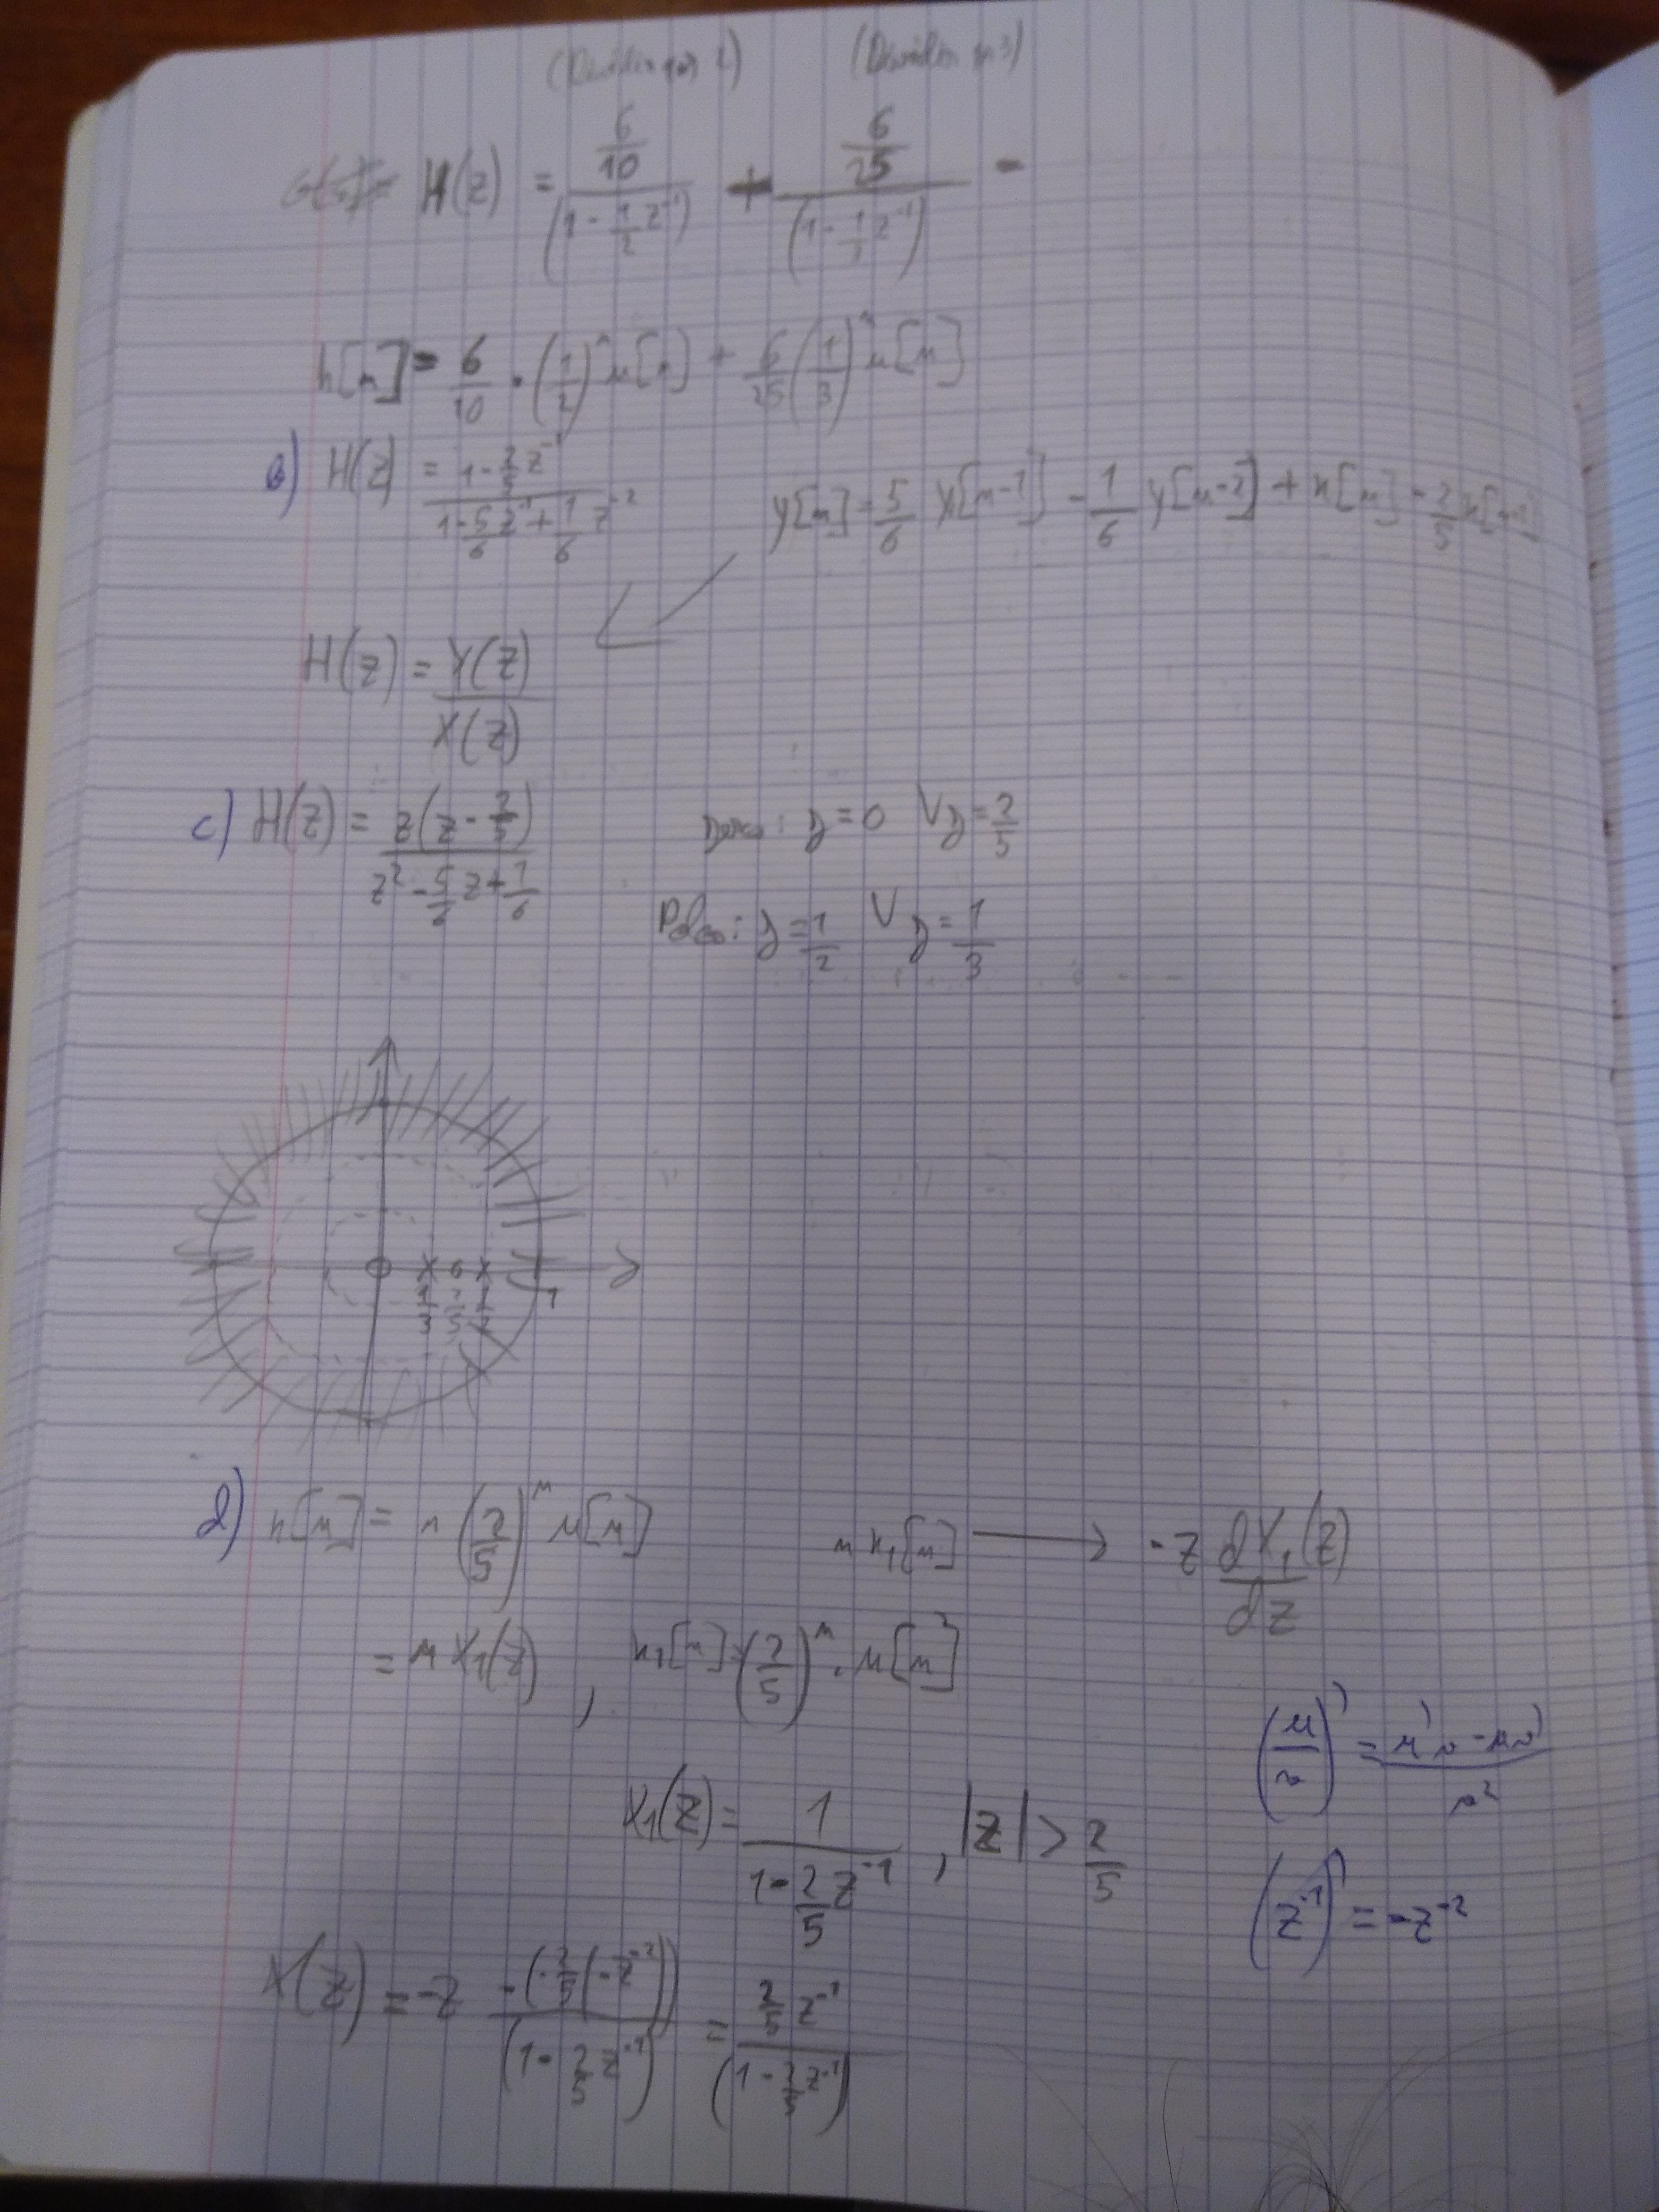 H(z) = \frac{\frac{6}{10}}{(1-\frac{1}{2}z^{-1})} + \frac{\frac{6}{25}}{(1-\frac{1}{3}z^{-1})} -
h[n] = \frac{6}{10} \cdot (\frac{1}{2})^n u[n] + \frac{6}{25} (\frac{1}{3})^n u[n]
b) H(z) = \frac{1-\frac{2}{5}z^{-1}}{1-\frac{5}{6}z^{-1}+\frac{1}{6}z^{-2}}
y[n] = \frac{5}{6} y[n-1] - \frac{1}{6} y[n-2] + x[n] - \frac{2}{5} x[n-1]
H(z) = \frac{Y(z)}{X(z)}
c) H(z) = \frac{z(z-\frac{2}{5})}{z^2-\frac{5}{6}z+\frac{1}{6}}
Zeros: z=0 V z=\frac{2}{5}
Polos: z=\frac{1}{2} V z=\frac{1}{3}
\frac{1}{3} \frac{2}{5} \frac{1}{2} 1
d) x[n] = n (\frac{2}{5})^n u[n]
n x_1[n] → -z \frac{dX_1(z)}{dz}
= n X_1(z) , x_1[n] = (\frac{2}{5})^n \cdot u[n]
(\frac{u}{v})' = \frac{u'v-uv'}{v^2}
X_1(z) = \frac{1}{1-\frac{2}{5}z^{-1}} , |z| > \frac{2}{5}
(z^{-1})' = -z^{-2}
X(z) = -z \frac{-(-\frac{2}{5}(-z^{-2}))}{(1-\frac{2}{5}z^{-1})} = \frac{\frac{2}{5}z^{-1}}{(1-\frac{2}{5}z^{-1})}